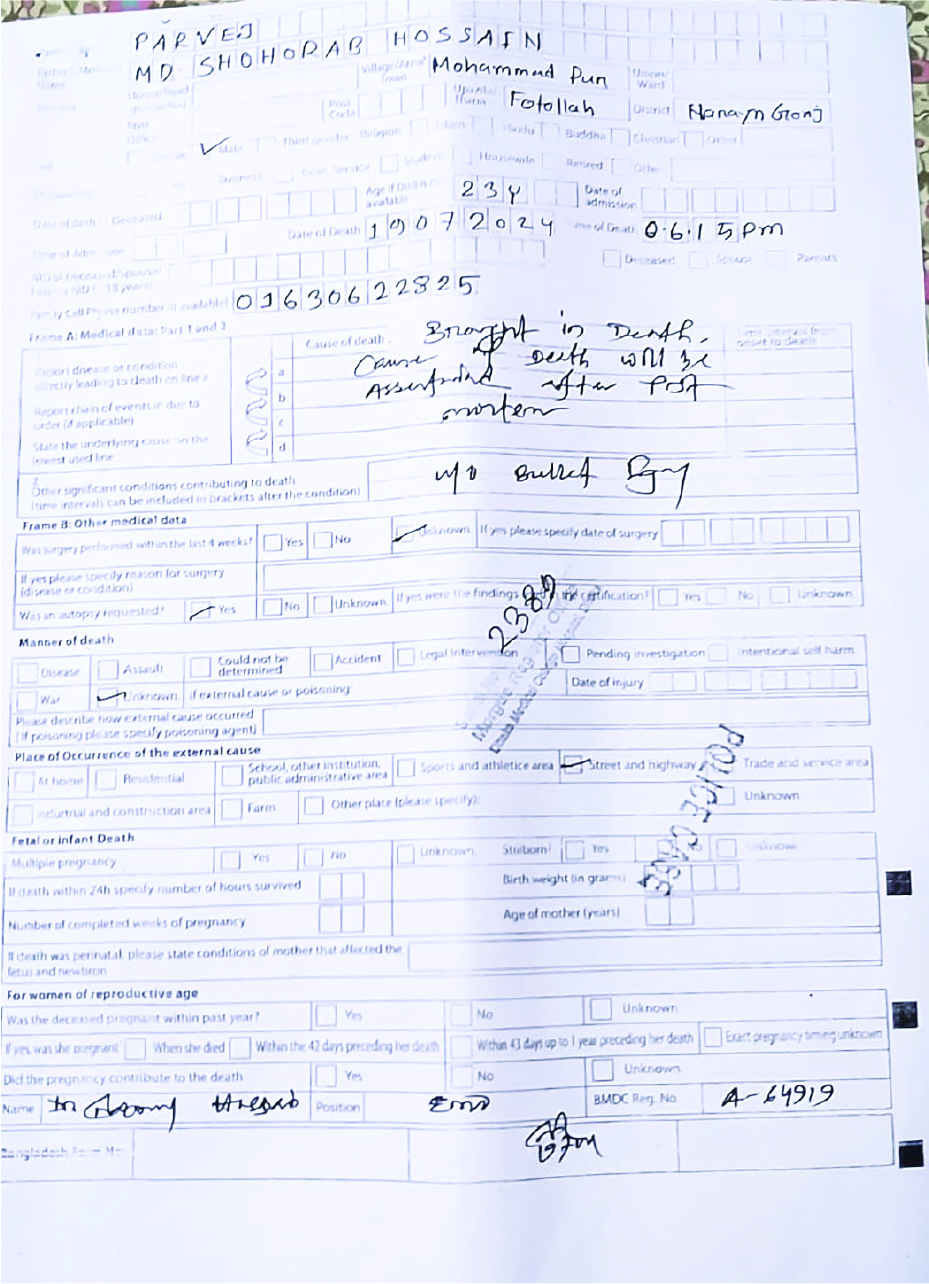 PARVEJ
MD SHOHORAB HOSSAIN
Name
Village/Area/Town Mohammad Pur Union/Ward
Post Code Upazila/Thana Fotollah District Narayn Gonj
Post Office
Male Third gender Religion Islam Hindu Buddha Christian Other
Business Govt. Service Student Housewife Retired Other
Date of Birth - Deceased Age if DoB not available 23Y Date of admission
Time of Admission Date of Death 19072024 Time of Death 06.15 pm
Deceased Spouse Parents
Family Cell Phone number (if available) 01630622825
Frame A: Medical data: Part 1 and 2
Cause of death Brought in Death. Time interval from onset to death
Report disease or condition directly leading to death on line a
a Cause of Death will be
Report chain of events in due to order (if applicable)
b after Post
c mortem
State the underlying cause on the lowest used line
d
2
Other significant conditions contributing to death (time intervals can be included in brackets after the condition) Bullet
Frame B: Other medical data
Was surgery performed within the last 4 weeks? Yes No Unknown If yes please specify date of surgery
If yes please specify reason for surgery (disease or condition)
Was an autopsy requested? Yes No Unknown If yes were the findings the certification? Yes No Unknown
2389
Manner of death
Disease Assault Could not be determined Accident Legal Intervention Pending investigation Intentional self harm
War Unknown If external cause or poisoning: Date of injury
Please describe how external cause occurred (If poisoning please specify poisoning agent)
Morgue
Dhaka Medical College
Place of Occurrence of the external cause
At home Residential School, other institution, public administrative area Sports and athletice area Street and highway Trade and service area
Indurtrial and construction area Farm Other place (please specify): Unknown
POLICE CASE
Fetal or infant Death
Multiple pregnancy Yes No Unknown Stillborn? Yes No Unknown
If death within 24h specify number of hours survived Birth weight (in grams)
Number of completed weeks of pregnancy Age of mother (years)
If death was perinatal, please state conditions of mother that affected the fetus and newbron
For women of reproductive age
Was the deceased pregnant within past year? Yes No Unknown
If yes, was she pregnant When she died Within the 42 days preceding her death Within 43 days up to 1 year preceding her death Exact pregnancy timing unknown
Did the pregnancy contribute to the death Yes No Unknown
Name Position EMO BMDC Reg. No. A-64919